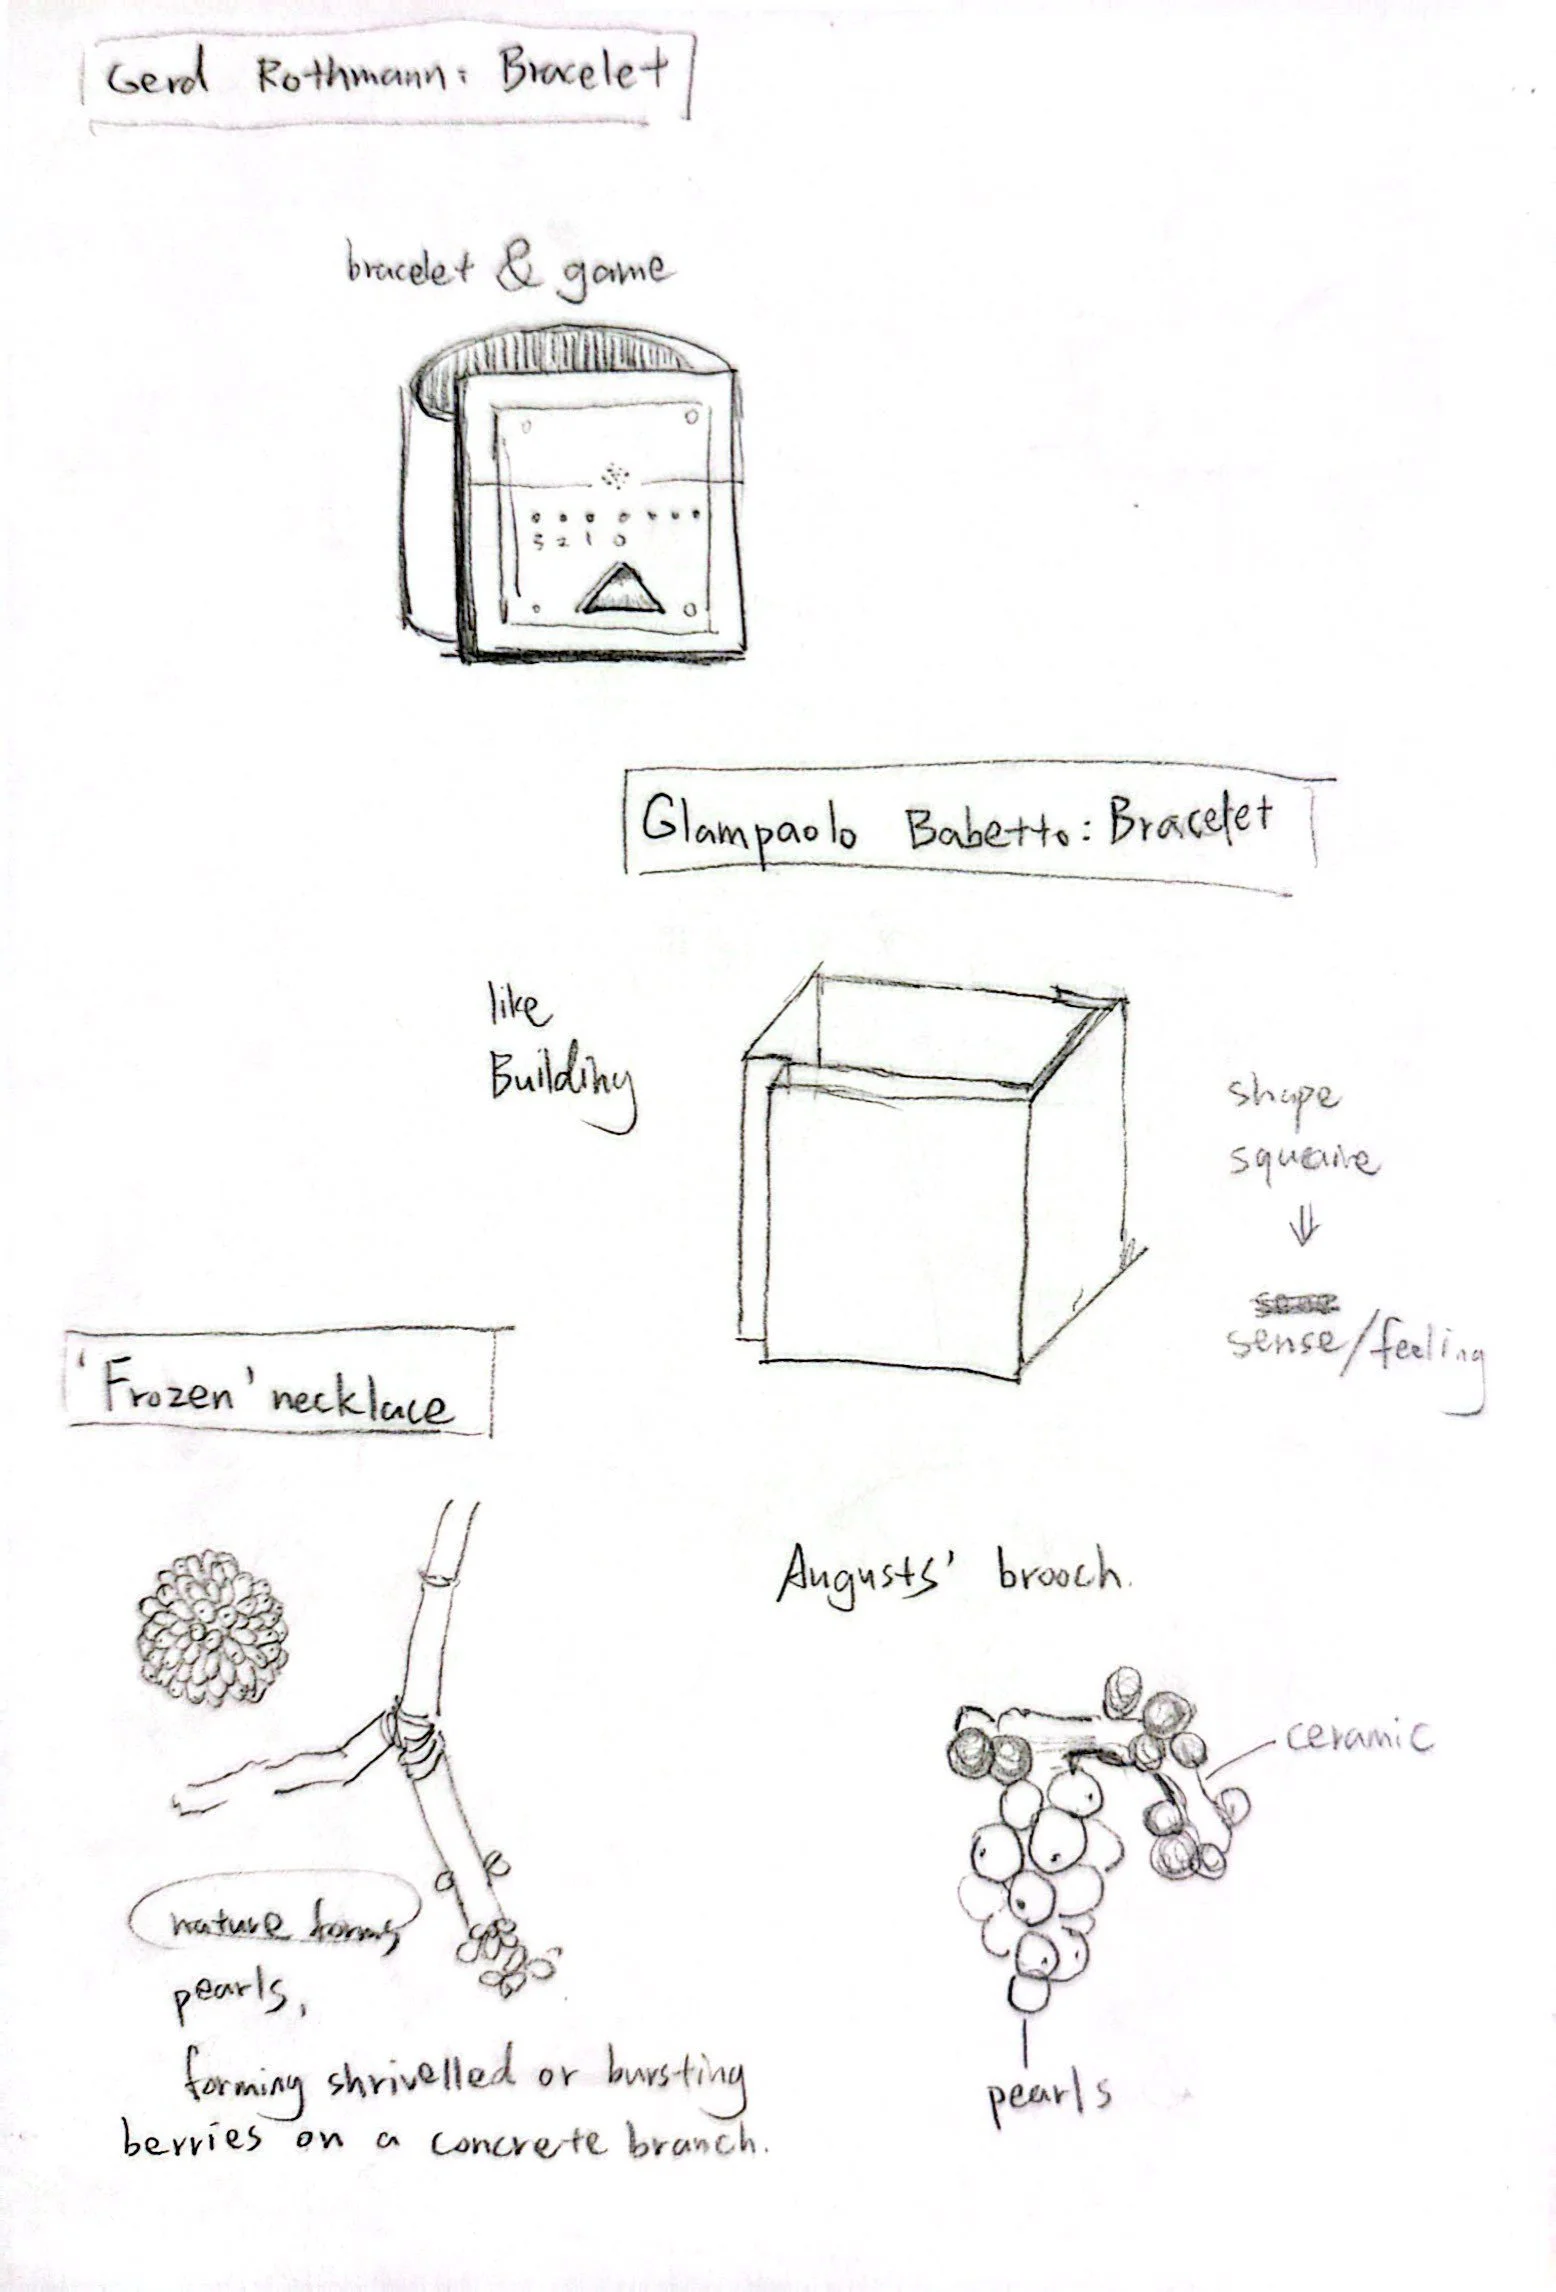 Gerd Rothmann: Bracelet
bracelet & game
3 2 1 0
Glampaolo Babetto: Bracelet
like
Building
shape
squaire
⇓
sense/feeling
'Frozen' necklace
Augusts' brooch.
ceramic
nature forms
pearls,
forming shrivelled or bursting
berries on a concrete branch.
pearls